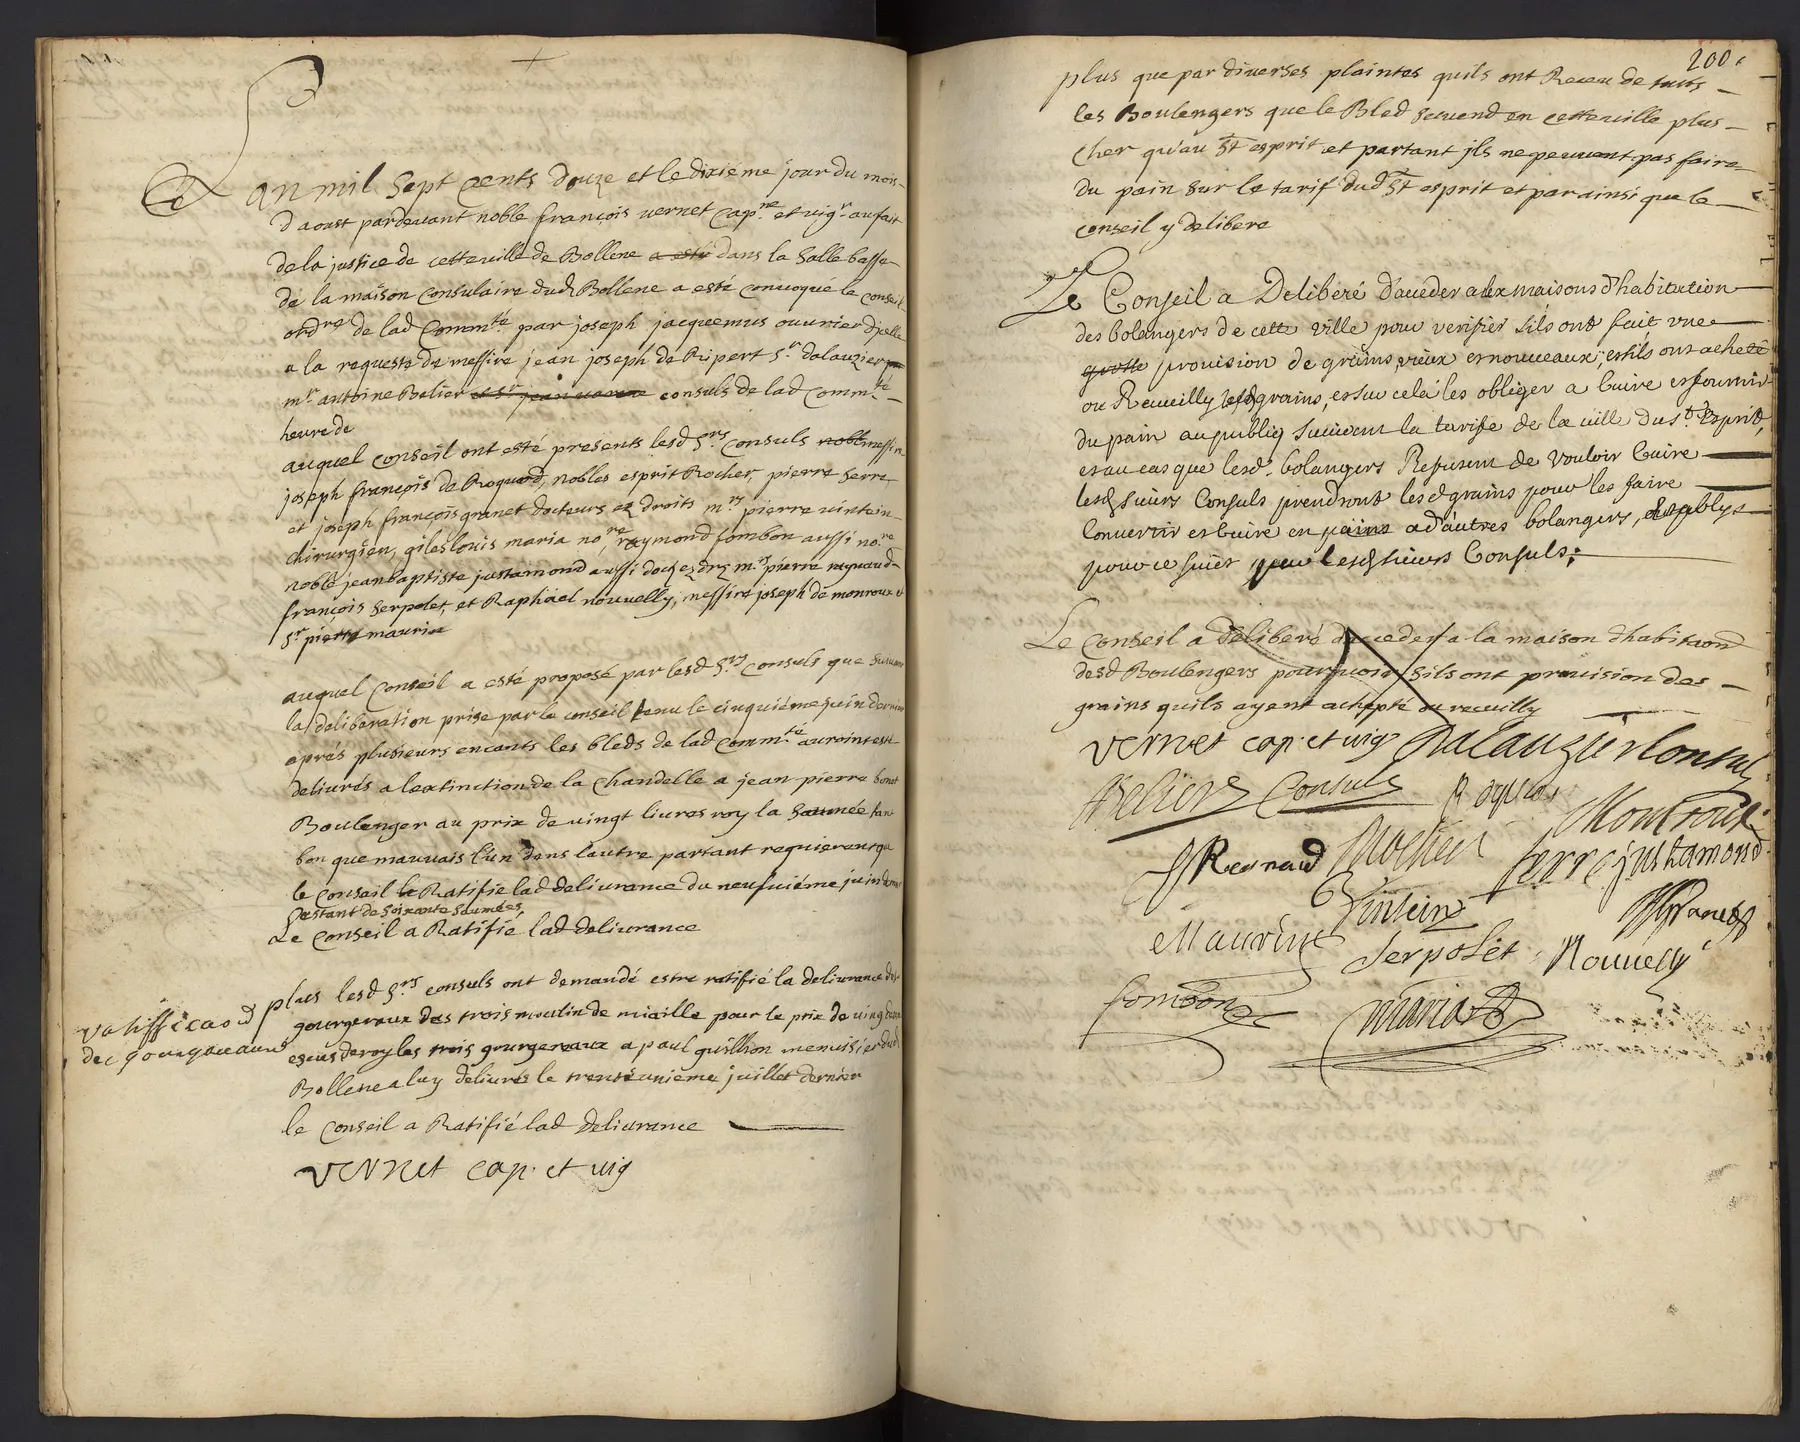 L'an mil sept cents douze et le dixieme jour du mois
d'aoust pardevant noble françois vernet cap.ne et vig.r au fait
de la justice de cette ville de Bollene a esté dans la salle basse
de la maison consulaire dud Bollene a esté convoqué le conseil
ord.re de lad Comm.té par joseph jacquemus ouvrier d'jcelle
a la requeste de messire jean joseph de Ripert s.r dalauzier
m.r antoine Belier et s.r jean consuls de lad Comm.té
heure de
auquel conseil ont esté presents lesd s.rs consuls noble messire
joseph françois de Roquard, nobles esprit Rocher, pierre serre
et joseph françois granet docteurs ez droits m.rs pierre vintein
chirurgien, giles louis maria no.re, reymond fombon aussi no.re
noble jean baptiste justamond aussi doct ez drz m.rs pierre raynaud
françois serpolet, et Raphael nouvelly, messire joseph de monroux et
s.r pierre maurin
auquel Conseil a esté proposé par lesd s.rs Consuls que suivant
la deliberation prise par le conseil tenu le cinquiéme juin dernier
aprés plusieurs encants les bleds de lad comm.té auroint esté
delivrés a lextinction de la chandelle a jean pierre bonet
Boulenger au prix de vingt livres roy la saumée tant
bon que mauvais l'un dans lautre partant requierent que
le conseil la Ratifie lad delivrance du neufviéme juin dernier
Restant de soixante saumées
Le conseil a Ratifié lad delivrance
plus lesd s.rs consuls ont demandé estre ratifié la delivrance des
ratifficaon
des gourgareaux
gourgereaux des trois moulin de miaille pour le prix de vingt
escus de roy les trois gourgereaux a paul guillion menuisier dud
Bollene a luy delivrés le trenteunieme juillet dernier
le conseil a Ratifié lad delivrance
vernet cap. et vig
200
plus que par diverses plaintes quils ont Receu de touts
les Boulengers que le Bled se vend en cette ville plus
cher qu'au St esprit et partant jls ne peuvent pas faire
du pain sur le tarif dud St esprit et par ainsi que le
conseil y delibere
Le Conseil a Deliberé d'acceder aux maisons d'habitation
des bolangers de cette ville pour verifier sils ont fait une
grosse provision de grains, vieux et nouveaux, et sils ont acheté
ou Recueilly lesd grains, et sur cela les obliger a Cuire et fournir
du pain au publiq suivant la tariffe de la ville du St Esprit,
et au cas que lesd. bolangers Refusent de vouloir Cuire
lesd sieurs Consuls prendront lesd grains pour les faire
Convertir et Cuire en pains a d'autres bolangers, establys
pour ce sujet par lesd sieurs Consuls;
Le conseil a deliberé dacceder a la maison dhabitaon
desd Boulengers pour voir sils ont provision des
grains quils ayent achepté ou recuilly
vernet cap. et vig Dalauzier Consul
ABelier Consul Roquard
Monroux
Reynaud Rocher Serre justamond
Vintein Granet
Maurin Serpolet Nouvelly
fombon maria